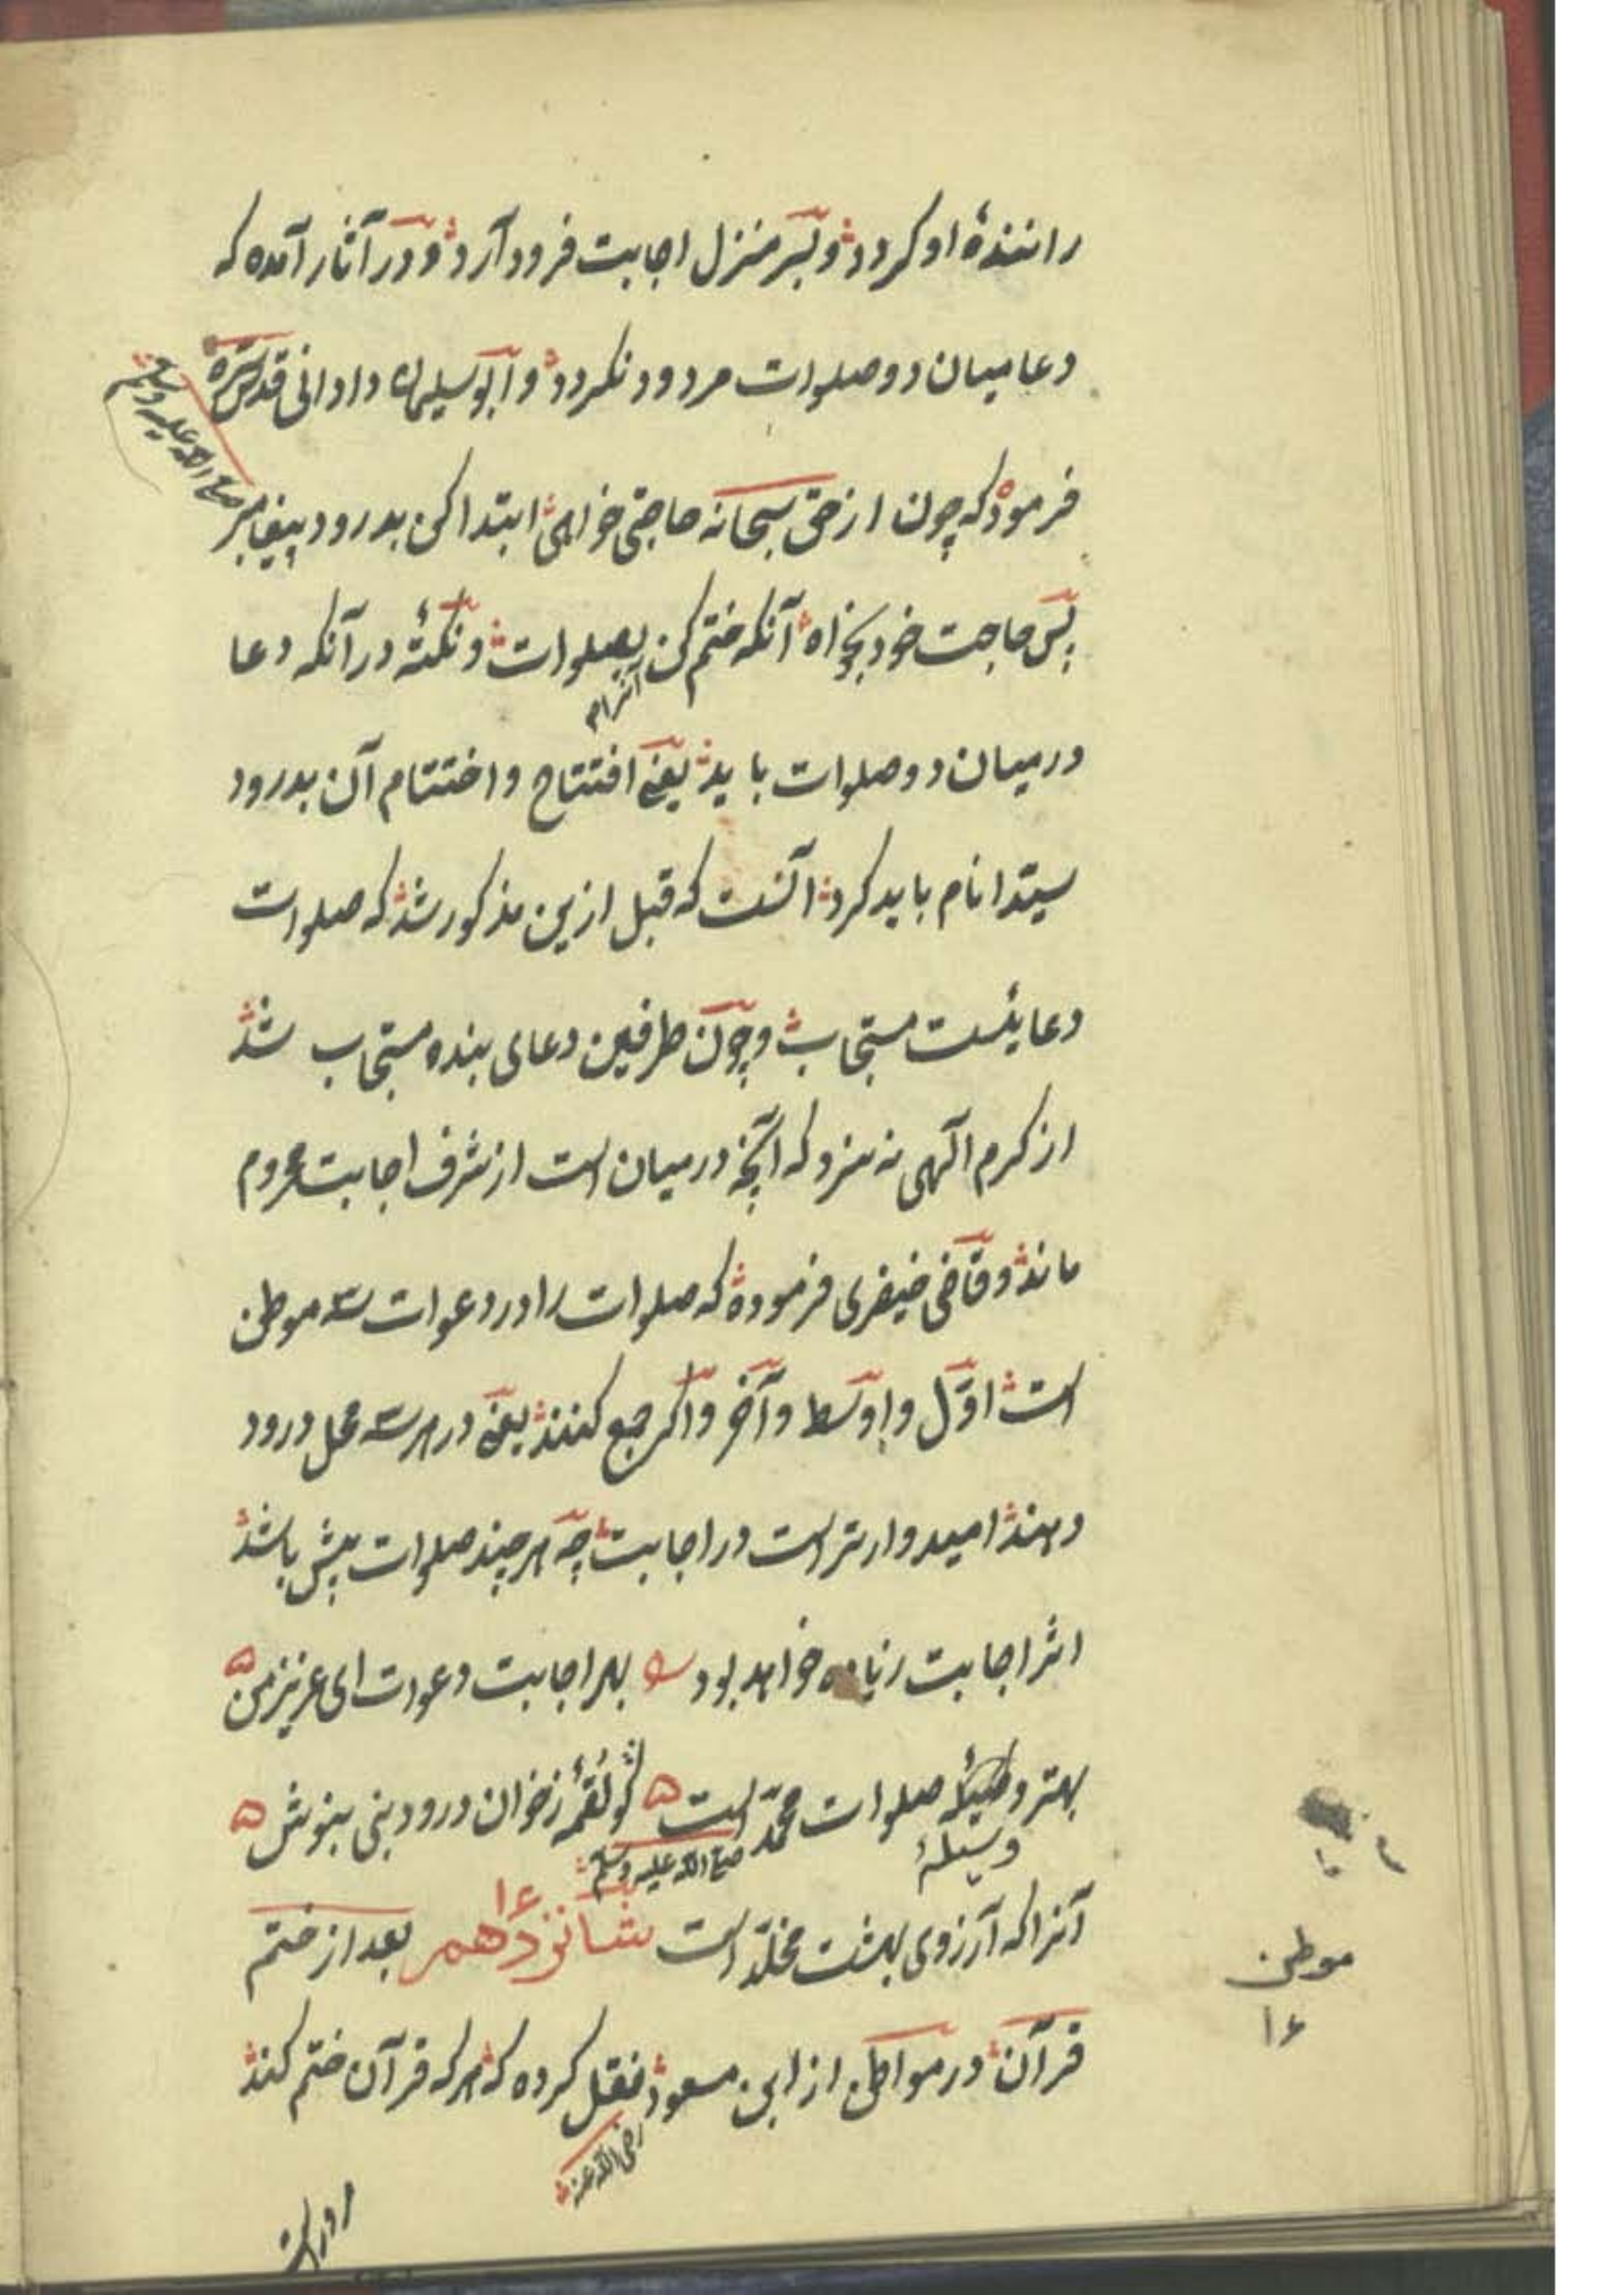 رانندهٔ او کردد وبسر منزل اجابت فرود آرد ودر آثار آمده که
دعا میان دو صلوات مردود نکردد وابو سلیمان دادانی قدس سره
فرمود که چون از حق سبحانه حاجتی خواهی ابتدا کن بدرود پیغامبر
صلی الله علیه وسلم
پس حاجت خود بخواه آنکه ختم کن بصلوات ونکتهٔ در آنکه دعا
در میان دو صلوات باید یعنی افتتاح واختتام آن بدرود
سیّد انام باید کرد آنست که قبل ازین مذکور شد که صلوات
دعایئست مستجاب وچون طرفین دعای بنده مستجاب شد
از کرم الهی نه سزد که آنچه در میان است از شرف اجابت محروم
ماند وقاضی خیضری فرموده که صلوات را در دعوات سه موطن
است اوّل واوسط وآخر واکر جمع کنند یعنی در هر سه محل درود
دهند امیدوارتر است در اجابت چه هر چند صلوات بیش باشد
اثر اجابت زیاده خواهد بود بهر اجابت دعوت ای عزیز من
بهتر وسیلهٔ صلوات محمّد است کو لُقمهٔ زخوان درود نبی بنوش
وسیلهٔ
صلی الله علیه وسلم
آنرا که آرزوی بهشت مخلّد است شانزدهم ۱۶ بعد از ختم
قرآن در مواطن از ابن مسعود نقل کرده که هر که قرآن ختم کند
رضی الله عنه
موطن
۱۶